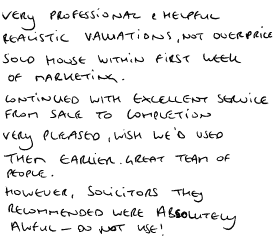 VERY PROFESSIONAL & HELPFUL
REALISTIC VALUATIONS, NOT OVERPRICE
SOLD HOUSE WITHIN FIRST WEEK
OF MARKETING.
CONTINUED WITH EXCELLENT SERVICE
FROM SALE TO COMPLETION
VERY PLEASED, WISH WE'D USED
THEM EARLIER. GREAT TEAM OF
PEOPLE.
HOWEVER, SOLICITORS THEY
RECOMMENDED WERE ABSOLUTELY
AWFUL - DO NOT USE!